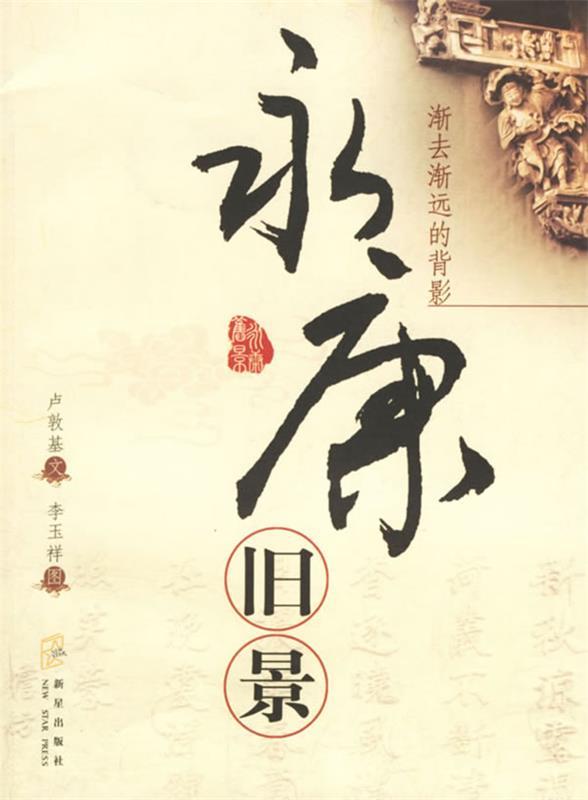 渐去渐远的背影
永康
旧景
永康
舊景
卢敦基 文
李玉祥 图
新星出版社
NEW STAR PRESS